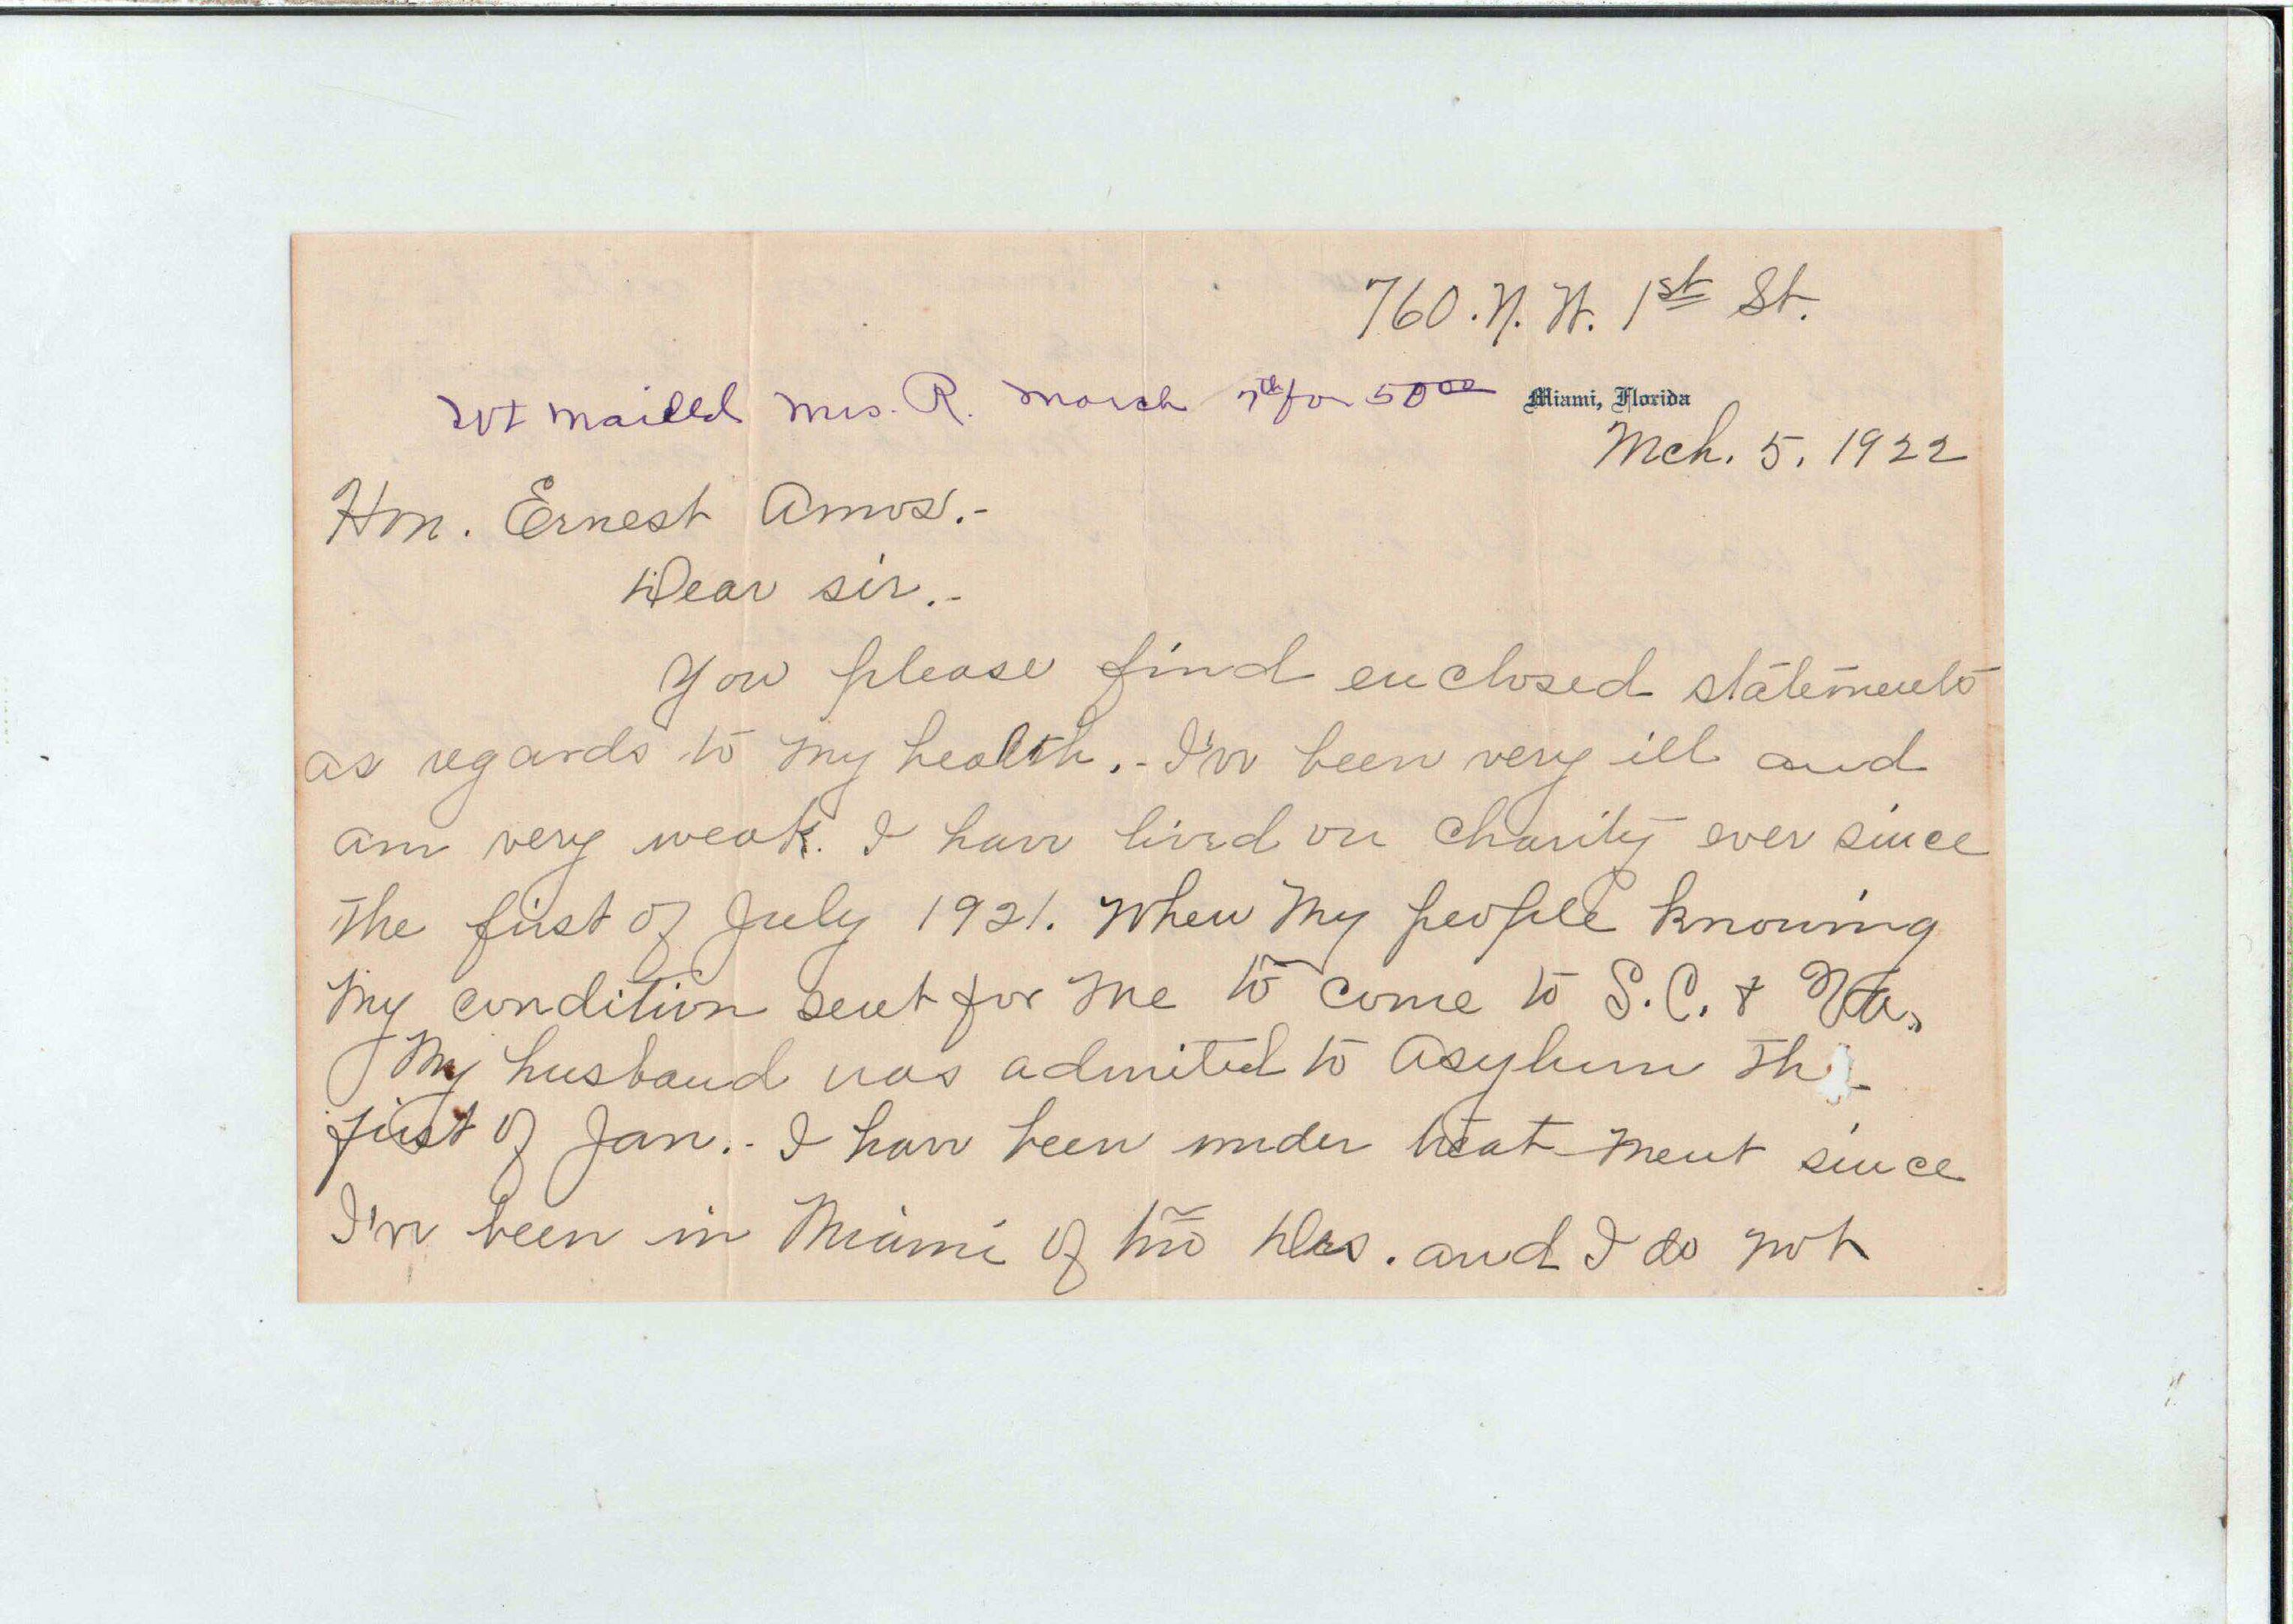 760. N. W. 1st St.
Wt mailed Mrs. R. March 7th for 50 00 Miami, Florida
Mch. 5. 1922
Hon. Ernest Amos.-
Dear sir.-
You please find enclosed statements
as regards to my health.- I've been very ill and
am very weak. I have lived on charity ever since
the first of July 1921. When my people knowing
my condition sent for me to come to S.C. &
My husband was admited to asylum the
first of Jan.- I have been under treat-ment since
I've been in Miami of two Drs. and I do not